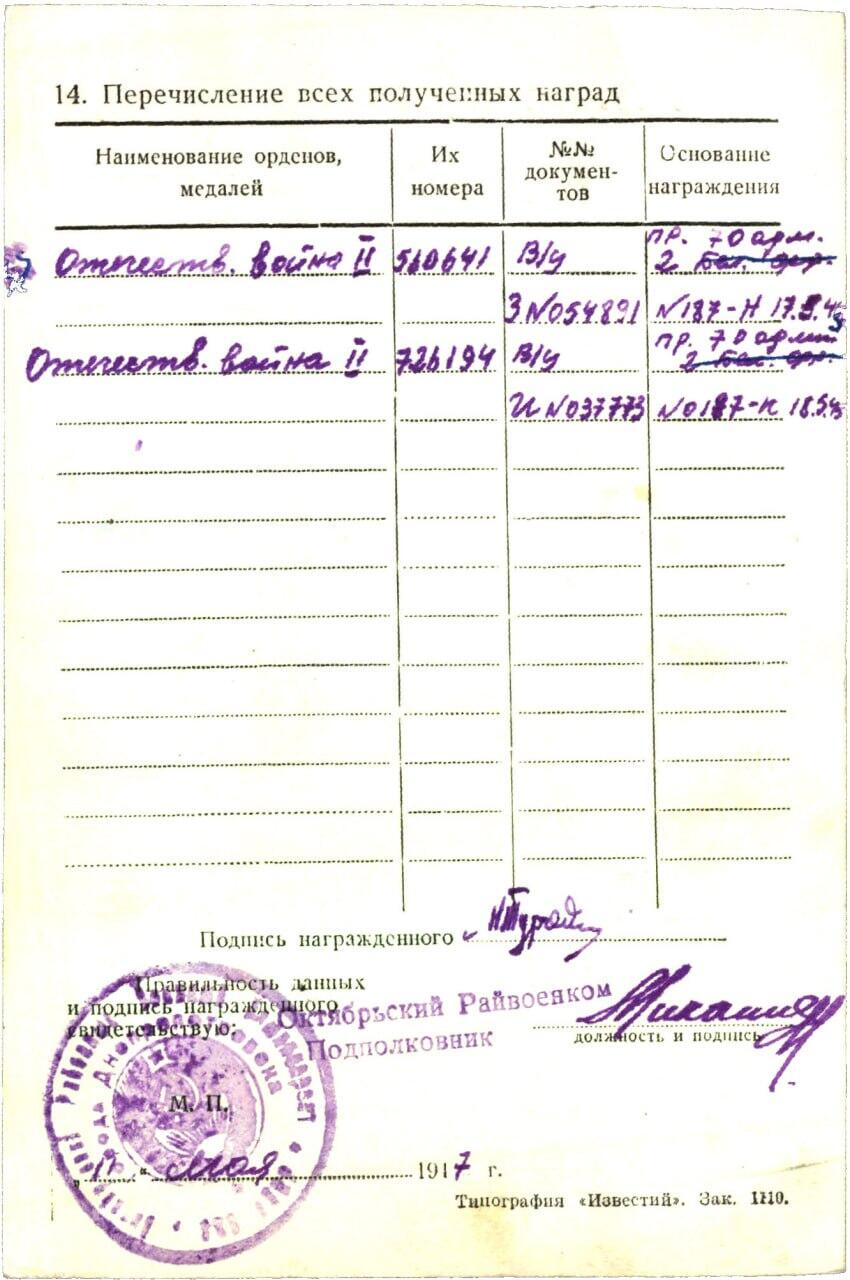 14. Перечисление всех полученных наград
Наименование орденов, медалей
Их номера
№№ докумен-тов
Основание награждения
Отечеств. война II 560641 В/у пр. 70 арм.
2 Бел. фр.
З №054891 №187-Н 17.5.45
Отечеств. война II 726194 В/у пр. 70 армии
2 Бел. фр.
И №037773 №0187-н 18.5.45
Подпись награжденного
Правильность данных
и подпись награжденного
свидетельствую:
Октябрьский Райвоенком
Подполковник
должность и подпись
М. П.
"11" мая 1947 г.
Типография «Известий». Зак. 1110.